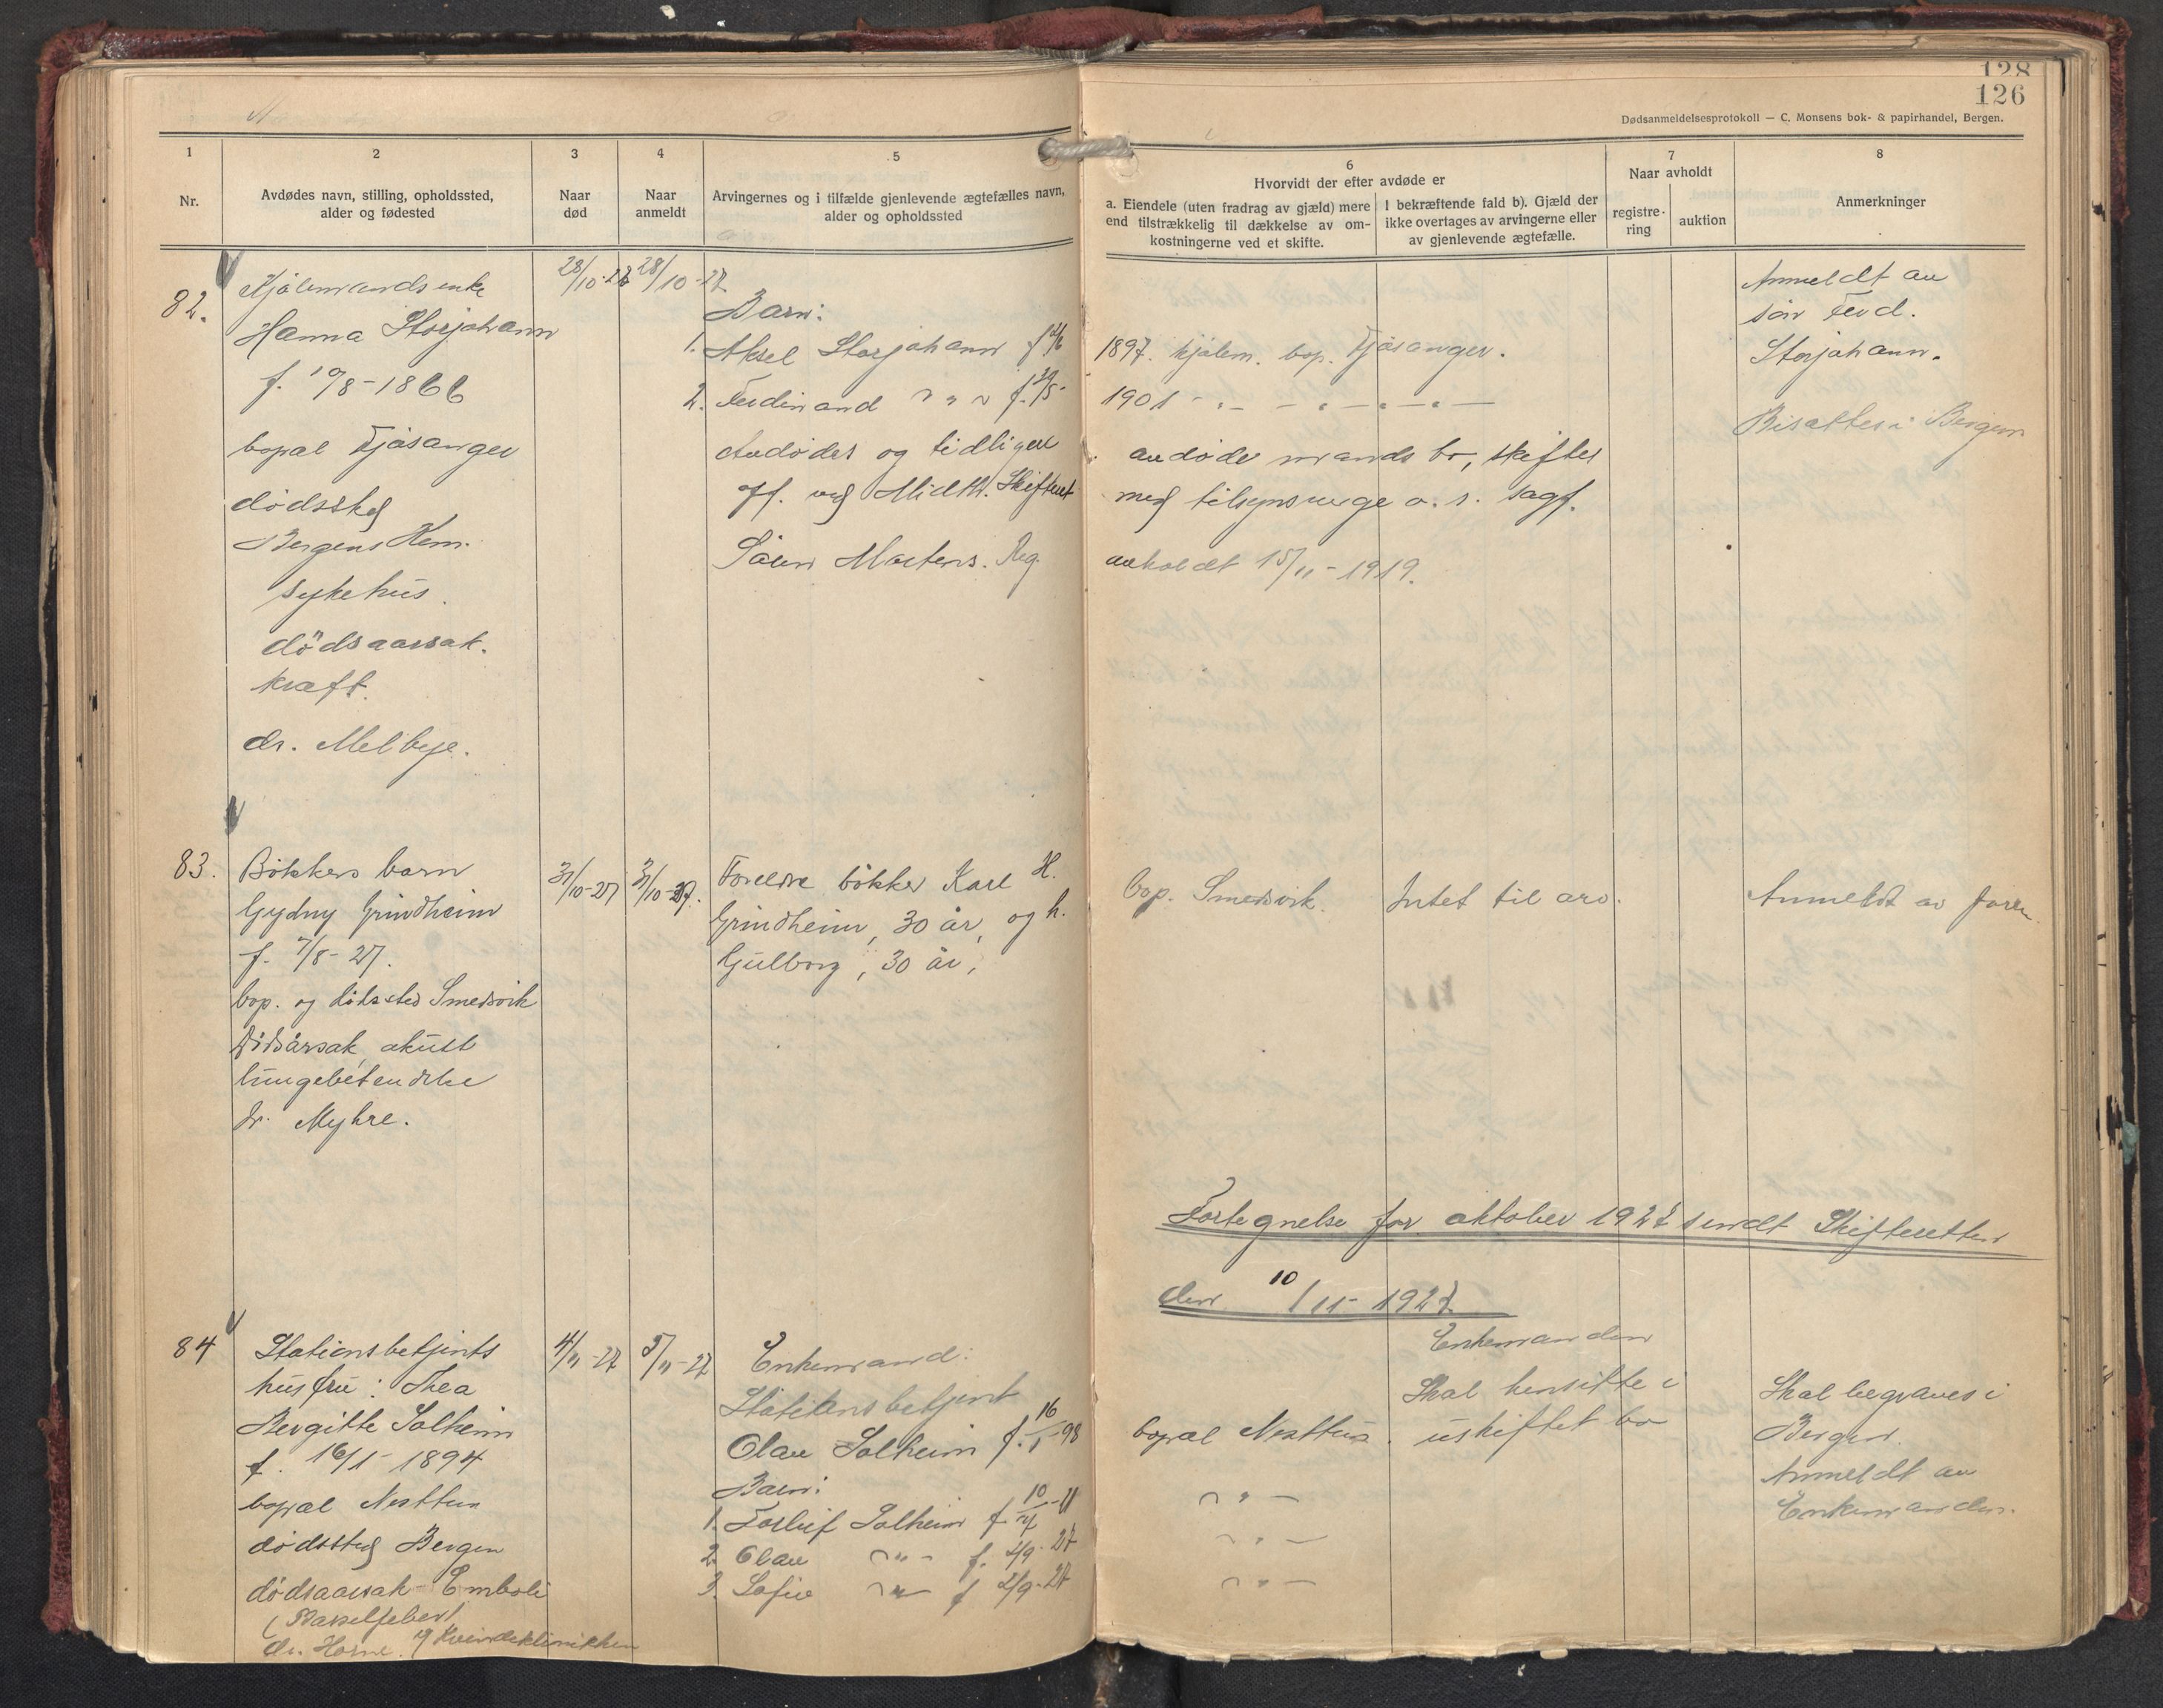 128
126
Dødsanmeldelsesprotokoll — C. Monsens bok- & papirhandel, Bergen.
1
Nr.
2
Avdødes navn, stilling, opholdssted,
alder og fødested
3
Naar
død
4
Naar
anmeldt
5
Arvingernes og i tilfælde gjenlevende ægtefælles navn,
alder og opholdssted
6
Hvorvidt der efter avdøde er
a. Eiendele (uten fradrag av gjæld) mere
end tilstrækkelig til dækkelse av om-
kostningerne ved et skifte.
I bekræftende fald b). Gjæld der
ikke overtages av arvingerne eller
av gjenlevende ægtefælle.
7
Naar avholdt
registre-
ring
auktion
8
Anmerkninger
82.
Hanna Storjohann
f. 10/8-1866
bopæl Fjøsanger
dødssted
Bergens Kom.
sykehus.
dødsaarsak.
kræft.
dr. Melbye.
28/10-27
28/10-27
Barn:
1. Aksel Storjohann
1897. bop. Fjøsanger.
2. Ferdinand
1901
Avdødes og tidligere
avdøde mands bo, skiftes
off. ved Midth. Skifteret
med tilsynsverge o. r. sagf.
Søren Martens. Reg.
avholdt 15/11-1919.
Anmeldt av
søn Ferd.
Storjohann.
Bisættes i Bergen
83.
Bøkkers barn
Gydny Grindheim
f. 7/8-27.
bop. og dødssted Smedsvik
Dødsårsak, akutt
lungebetendelse
dr. Myhre.
31/10-27
31/10-27.
Foreldre bøkker Karl H.
Grindheim, 30 år, og h.
Gulborg, 30 år,
bop. Smedsvik.
Intet til arv.
Anmeldt av faren
Fortegnelse for oktober 1927 sendt Skifteretten
den 10/11-1927.
84
Stationsbetjents
husfru: Thea
Bergitte Solheim
f. 16/1-1894
bopæl Nesttun
dødssted Bergen
dødsaarsak Emboli
(Barselfeber)
dr. Horne. Kvindeklinikken
4/11-27
5/11-27
Enkemand:
Stationsbetjent
Olav Solheim f. 16/1-98
Barn:
1. Torleif Solheim
2. Olav f. 2/9-27
3. f 2/9-27
bopæl Nesttun.
Enkemanden
Skal hensitte i
uskiftet bo
Skal begraves i
Bergen.
Anmeldt av
Enkemanden.